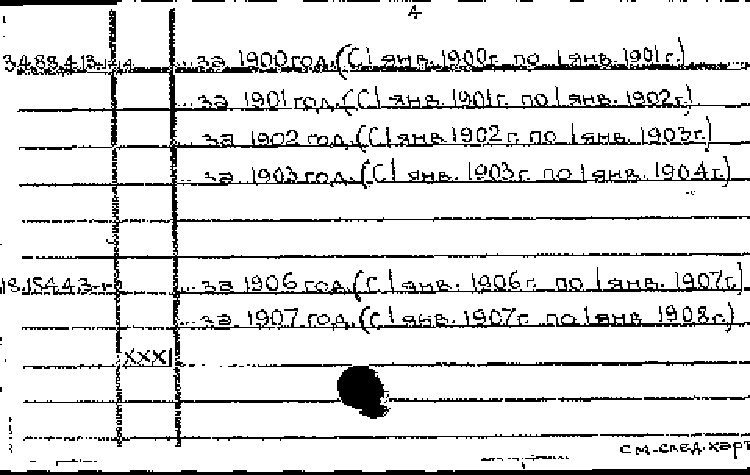 4
... за 1900 год. (С 1 янв. 1900г. по 1 янв. 1901г.)
... за 1901 год. (С 1 янв. 1901г. по 1 янв. 1902г.)
... за 1902 год. (С 1 янв. 1902г. по 1 янв. 1903г.)
... за 1903 год. (С 1 янв. 1903г. по 1 янв. 1904г.)
... за 1906 год. (С 1 янв. 1906г. по 1 янв. 1907г.)
... за 1907 год. (С 1 янв. 1907г. по 1 янв. 1908г.)
XXXI
см. след. карт